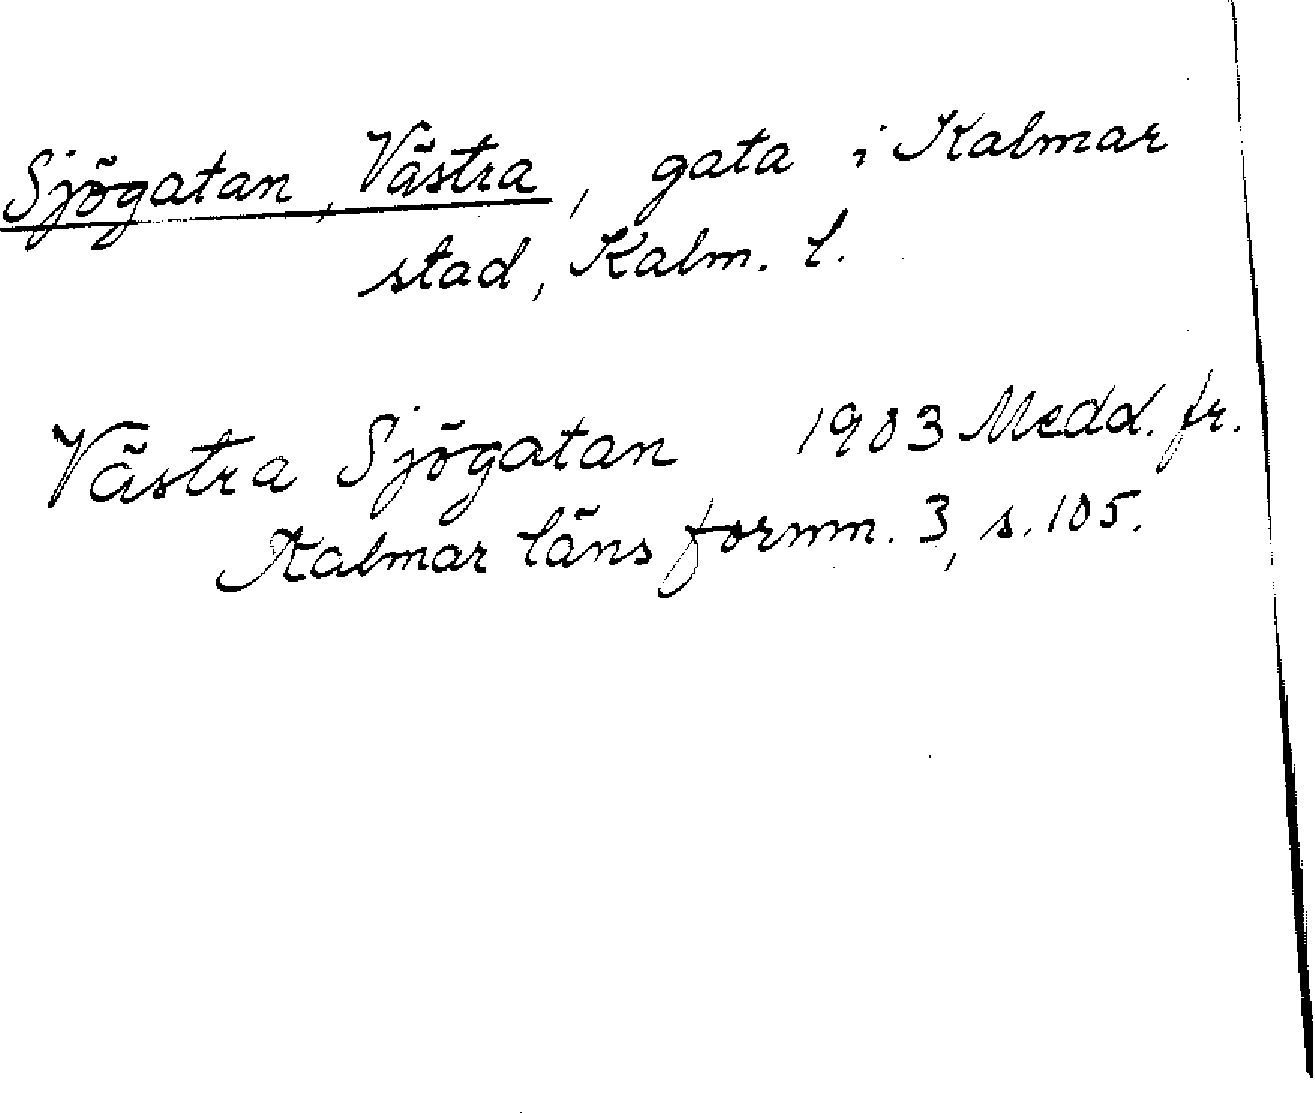 Sjögatan, Västra, gata i Kalmar
stad, Kalm. l.
Västra Sjögatan 1903 Medd. fr.
Kalmar läns fornm. 3, s. 105.